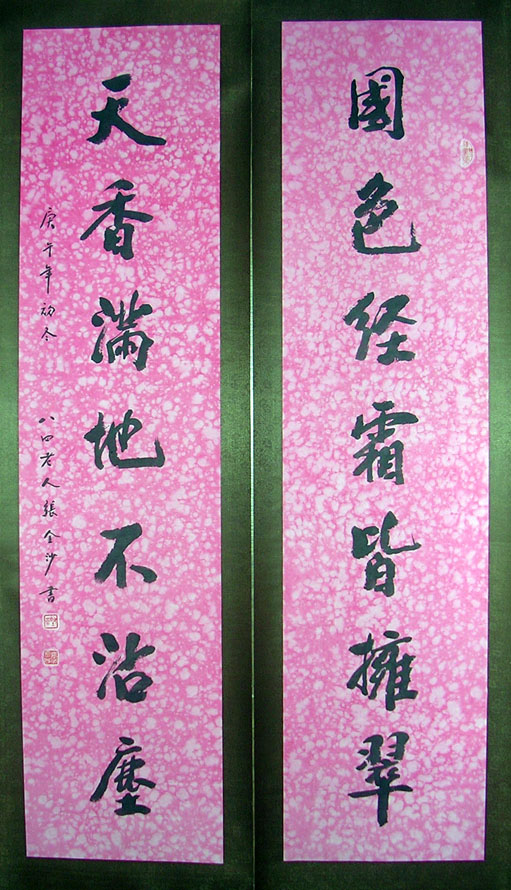 國色经霜皆擁翠
天香滿地不沾塵
庚午年初冬 八口老人張金沙書